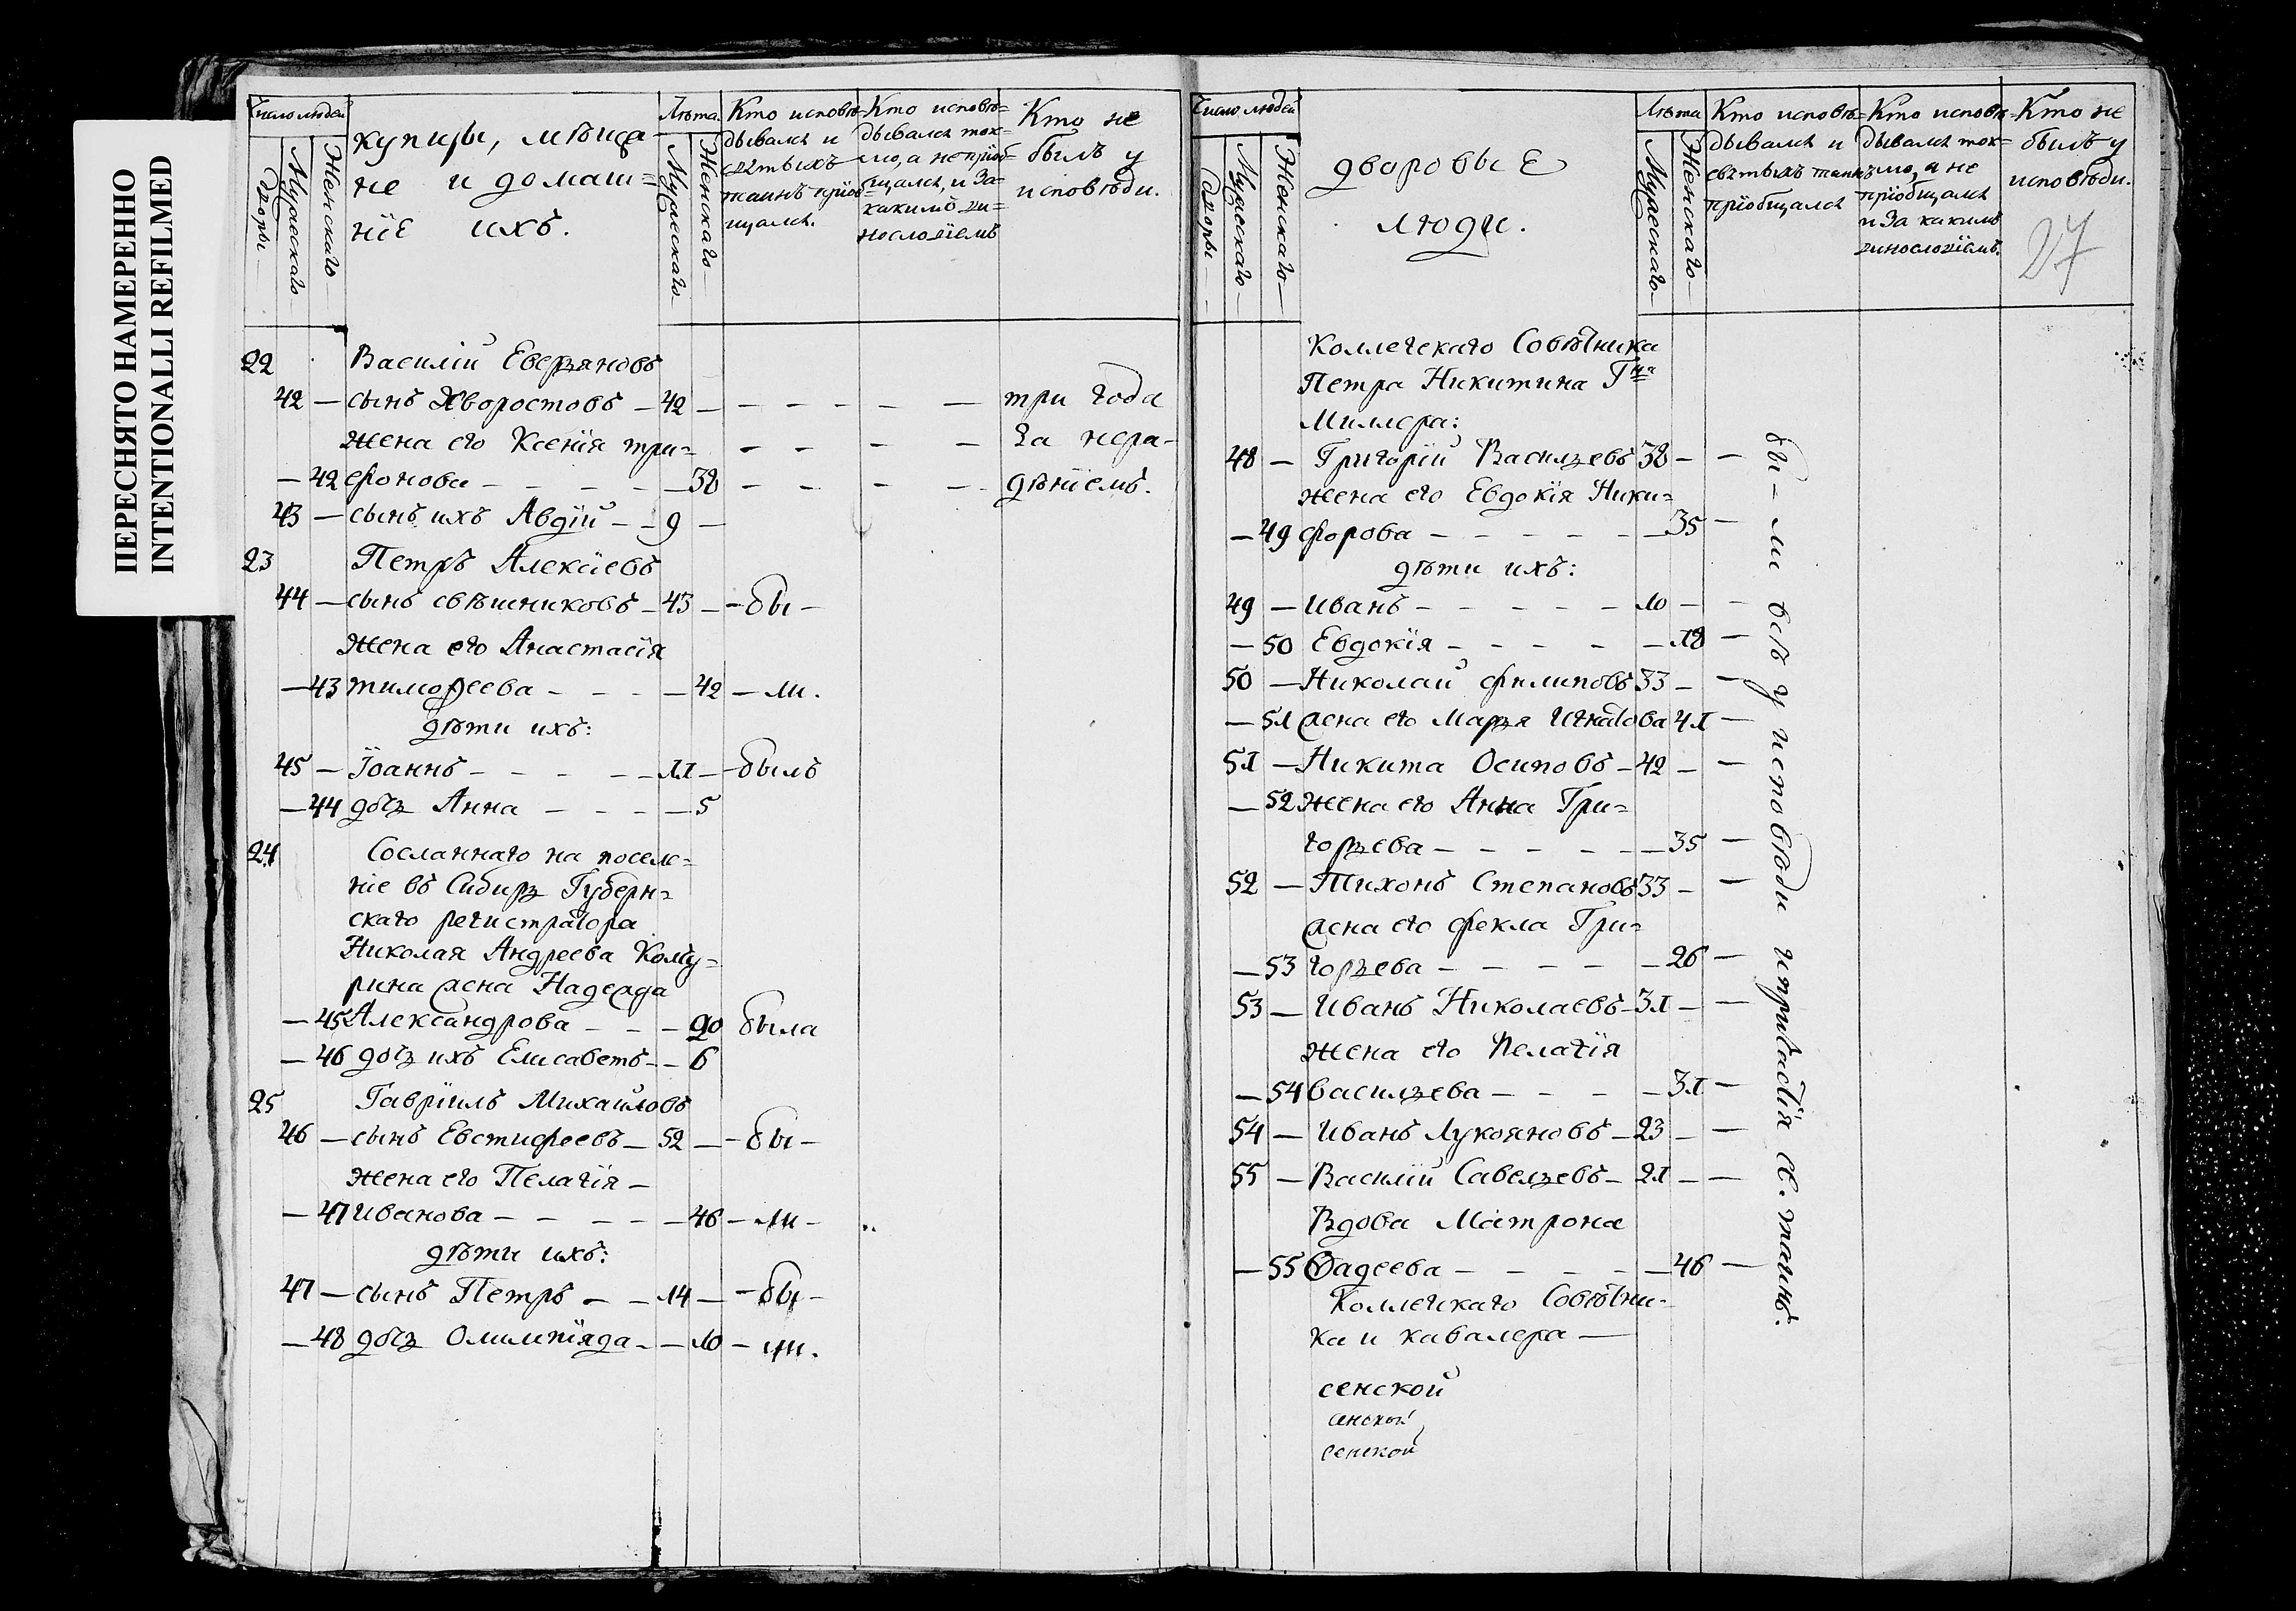 ПЕРЕСНЯТО НАМЕРЕННО
INTENTIONALLI REFILMED
Число людей
Дворы
Мужескаго
Женскаго
купцы, мѣща-
не и домаш=
нїе ихъ.
Лѣта.
Мужескаго
Женскаго
Кто исповѣ-
дывался и
святыхъ
таинъ прїоб
щался.
Кто исповѣ=
дывался ток-
мо, а не прїоб-
щался, и за
какимъ ви=
нословїемъ
Кто не
былъ у
исповѣди.
22 Василїй Еверьяновъ
42 — сынъ Хворостовъ — 42 — — — — — — три года
жена его Ксенїя три= — — — — за нера-
— 42 фонова — — — — 38 — — — — дѣнїемъ.
43 — сынъ ихъ Авдїй — — 9 —
23 Петръ Алексїевъ
44 — сынъ свѣшниковъ — 43 — — бы —
жена его Анастасїя
— 43 тимоѳеева — — — — 42 — ли.
дѣти ихъ:
45 — Їоаннъ — — — — — 11 — — былъ
— 44 дочь Анна — — — — 5
24 Сосланнаго на поселе=
нїе въ Сибирь Губерн=
скаго регистратора
Николая Андреева Кому=
рина жена Надежда
— 45 Александрова — — — 20 была
— 46 дочь ихъ Елисаветъ — — 6
25 Гаврїилъ Михайловъ
46 — сынъ Евстифеевъ — 52 — — бы —
жена его Пелагїя —
— 47 Иванова — — — — — 46 — ли —
дѣти ихъ:
47 — сынъ Петръ — — 14 — — бы —
— 48 дочь Олимпїяда — — 10 — ли.
Число людей
Дворы
Мужескаго
Женскаго
дворовые
люди.
Лѣта
Мужескаго
Женскаго
Кто исповѣ-
дывался и
святыхъ таинъ
прїобщался
Кто исповѣ
дывался ток-
мо, а не
прїобщался
и за какимъ
винословїемъ.
Кто не
былъ у
исповѣди.
27
Коллегскаго Совѣтника
Петра Никитина Гна
Миллера:
48 — Григорїй Васильевъ 38 — —
жена его Евдокїя Ники=
— 49 форова — — — — — — 35 —
дѣти ихъ:
49 — Иванъ — — — — — 10 — —
— 50 Евдокїя — — — — — 18 —
50 — Николай филиповъ 33 — —
— 51 жена его Марья Игнатова 41 —
51 — Никита Осиповъ — 42 — —
— 52 жена его Анна Гри=
горьева — — — — — — 35 —
52 — Тихонъ Степановъ 33 — —
жена его фекла Гри=
— 53 горьева — — — — — 26 —
53 — Иванъ Николаевъ — 31 — —
жена его Пелагїя
— 54 васильева — — — — 31 —
54 — Иванъ Лукояновъ — 23 — —
55 — Василїй Савельевъ — 21 — —
Вдова Матрона
— 55 Ѳадеева — — — — — 46 —
Коллегскаго Совѣтни-
ка и кавалера —
сенской
анской
сенской
бы — ли всѣ у исповѣди и причастїя св. таинъ.